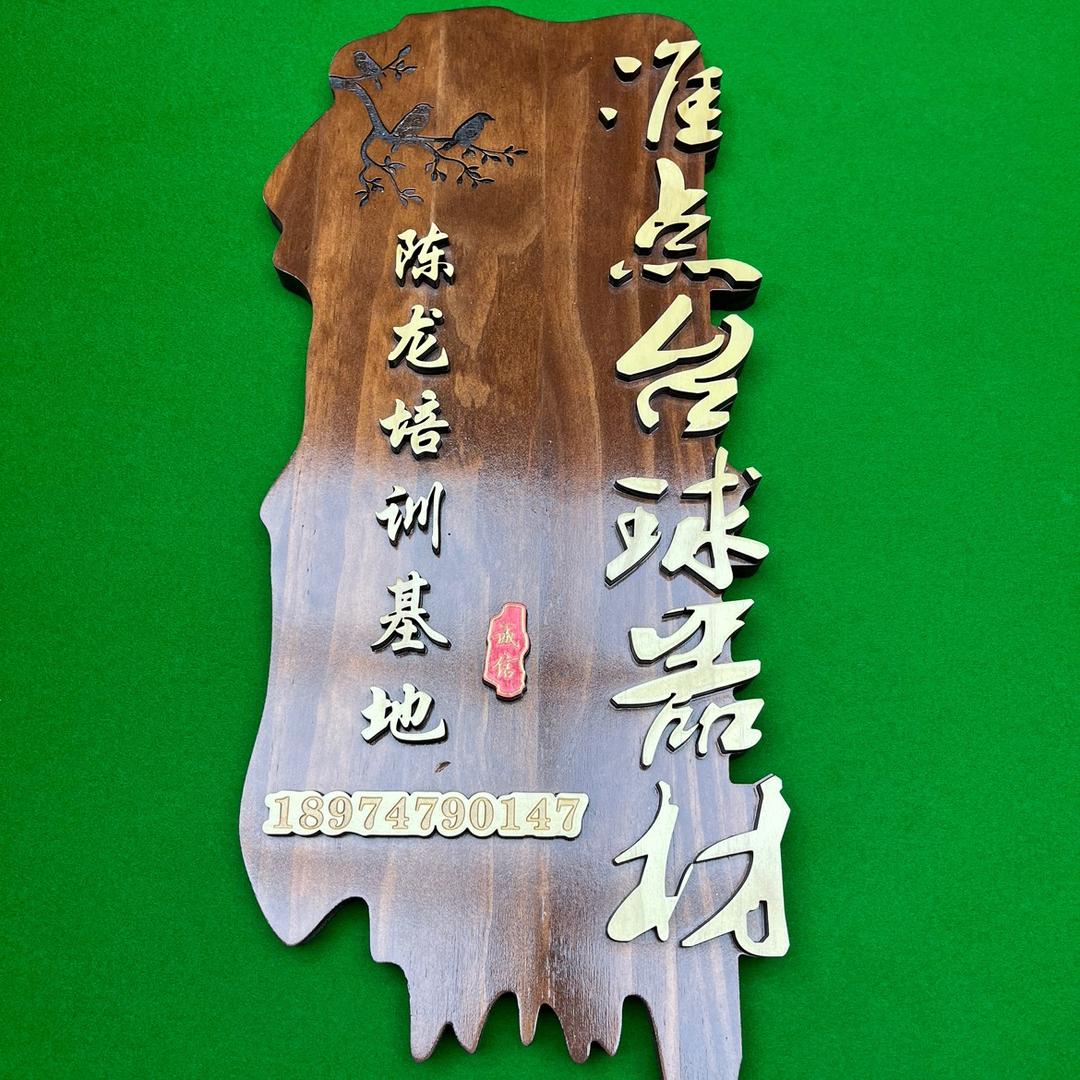 准点台球器材
陈龙培训基地
诚信
18974790147